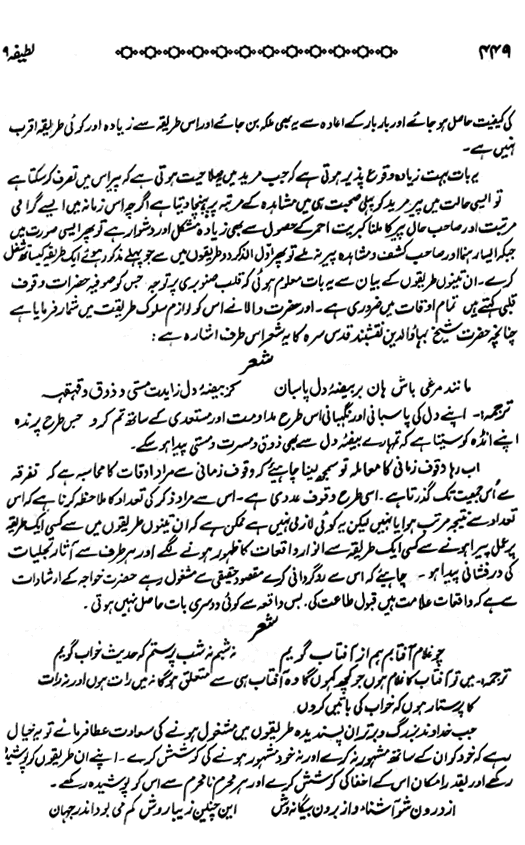 لطیفہ ۹
۴۴۹
کی کیفیت حاصل ہو جائے اور بار بار کے اعادہ سے یہ بھی ملکہ بن جائے اور اس طریقہ سے زیادہ اور کوئی طریقہ اقرب
نہیں ہے۔
یہ بات بہت زیادہ وقوع پذیر ہوتی ہے کہ جب مرید میں صلاحیت ہوتی ہے کہ پیر اس میں تصرف کر سکتا ہے
تو ایسی حالت میں پیر مرید کو پہلی صحبت ہی میں مشاہدہ کے مرتبہ پر پہنچا دیتا ہے اگرچہ اس زمانہ میں ایسے گرامی
مرتبت اور صاحب حال پیر کا ملنا کبریت احمر کے حصول سے بھی زیادہ مشکل اور دشوار ہے تو پھر ایسی صورت میں
جبکہ ایسا رہنما اور صاحب کشف و مشاہدہ پیر نہ ملے تو پھر اول الذکر دو طریقوں میں سے جو پہلے مذکور ہوئے ایک طریقہ کیساتھ شغل
کرے۔ ان تینوں طریقوں کے بیان سے یہ بات معلوم ہوئی کہ قلب صنوبری پر توجہ جس کو صوفیہ حضرات وقوف
قلبی کہتے ہیں تمام اوقات میں ضروری ہے۔ اور حضرت والا نے اس کو لوازم سلوک طریقت میں شمار فرمایا ہے
چنانچہ حضرت شیخ بہاؤالدین نقشبند قدس سرہ کا یہ شعر اس طرف اشارہ ہے:
شعر
مانند مرغی باش ہان بر بیضۂ دل پاسبان کز بیضۂ دل زایدت مستی و ذوق و قہقہہ
ترجمہ:۔ اپنے دل کی پاسبانی اور نگہبانی اس طرح مداومت اور مستعدی کے ساتھ تم کرو جس طرح پرندہ
اپنے انڈہ کو سیتا ہے کہ تمہارے بیضۂ دل سے بھی ذوق و مسرت و مستی پیدا ہو سکے۔
اب رہا وقوف زمانی کا معاملہ تو سمجھ لینا چاہیئے کہ وقوف زمانی سے مراد اوقات کا محاسبہ ہے کہ تفرقہ
سے اس جمعیت تک گذرتا ہے۔ اسی طرح وقوف عددی ہے۔ اس سے مراد ذکر کی تعداد کا ملاحظہ کرنا ہے کہ اس
تعداد سے نتیجہ مرتب ہوا یا نہیں لیکن یہ کوئی لازمی نہیں ہے ممکن ہے کہ ان تینوں طریقوں میں سے کسی ایک طریقہ
پر عمل پیرا ہونے سے کسی ایک طریقہ سے انوار واقعات کا ظہور ہونے لگے اور ہر طرف سے آثار تجلیات
کی درفشانی پیدا ہو۔ چاہیئے کہ اس سے روگردانی کرے مقصود حقیقی سے مشغول رہے حضرت خواجہ کے ارشادات
سے ہے کہ واقعات علامت ہیں قبول طاعت کی، بس واقعہ سے کوئی دوسری بات حاصل نہیں ہوتی۔
شعر
چو غلام آفتابم ہم از آفتاب گویم نہ شبم نہ شب پرستم کہ حدیث خواب گویم
ترجمہ:۔ میں تو آفتاب کا غلام ہوں جو کچھ کہوں گا وہ آفتاب ہی سے متعلق ہوگا نہ میں رات ہوں اور نہ رات
کا پرستار ہوں کہ خواب کی باتیں کروں
جب خداوند بزرگ و برتر ان پسندیدہ طریقوں میں مشغول ہونے کی سعادت عطا فرمائے تو یہ خیال
رہے کہ خود کو ان کے ساتھ مشہور نہ کرے اور نہ خود مشہور ہونے کی کوشش کرے۔ اپنے ان طریقوں کو پوشیدہ
رکھے اور بقدر امکان اس کے اخفا کی کوشش کرے اور ہر محرم نا محرم سے اس کو پوشیدہ رکھے۔
از درون شو آشنا و از برون بیگانہ وش این چنین زیبا روش کم می بود اندر جہان